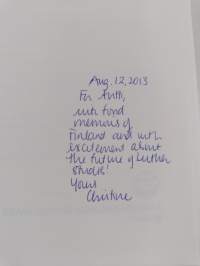 Aug. 12, 2013
For Antti,
with fond
memories of
Finland and with
excitement about
the future of Luther
studies!
Yours
Christine